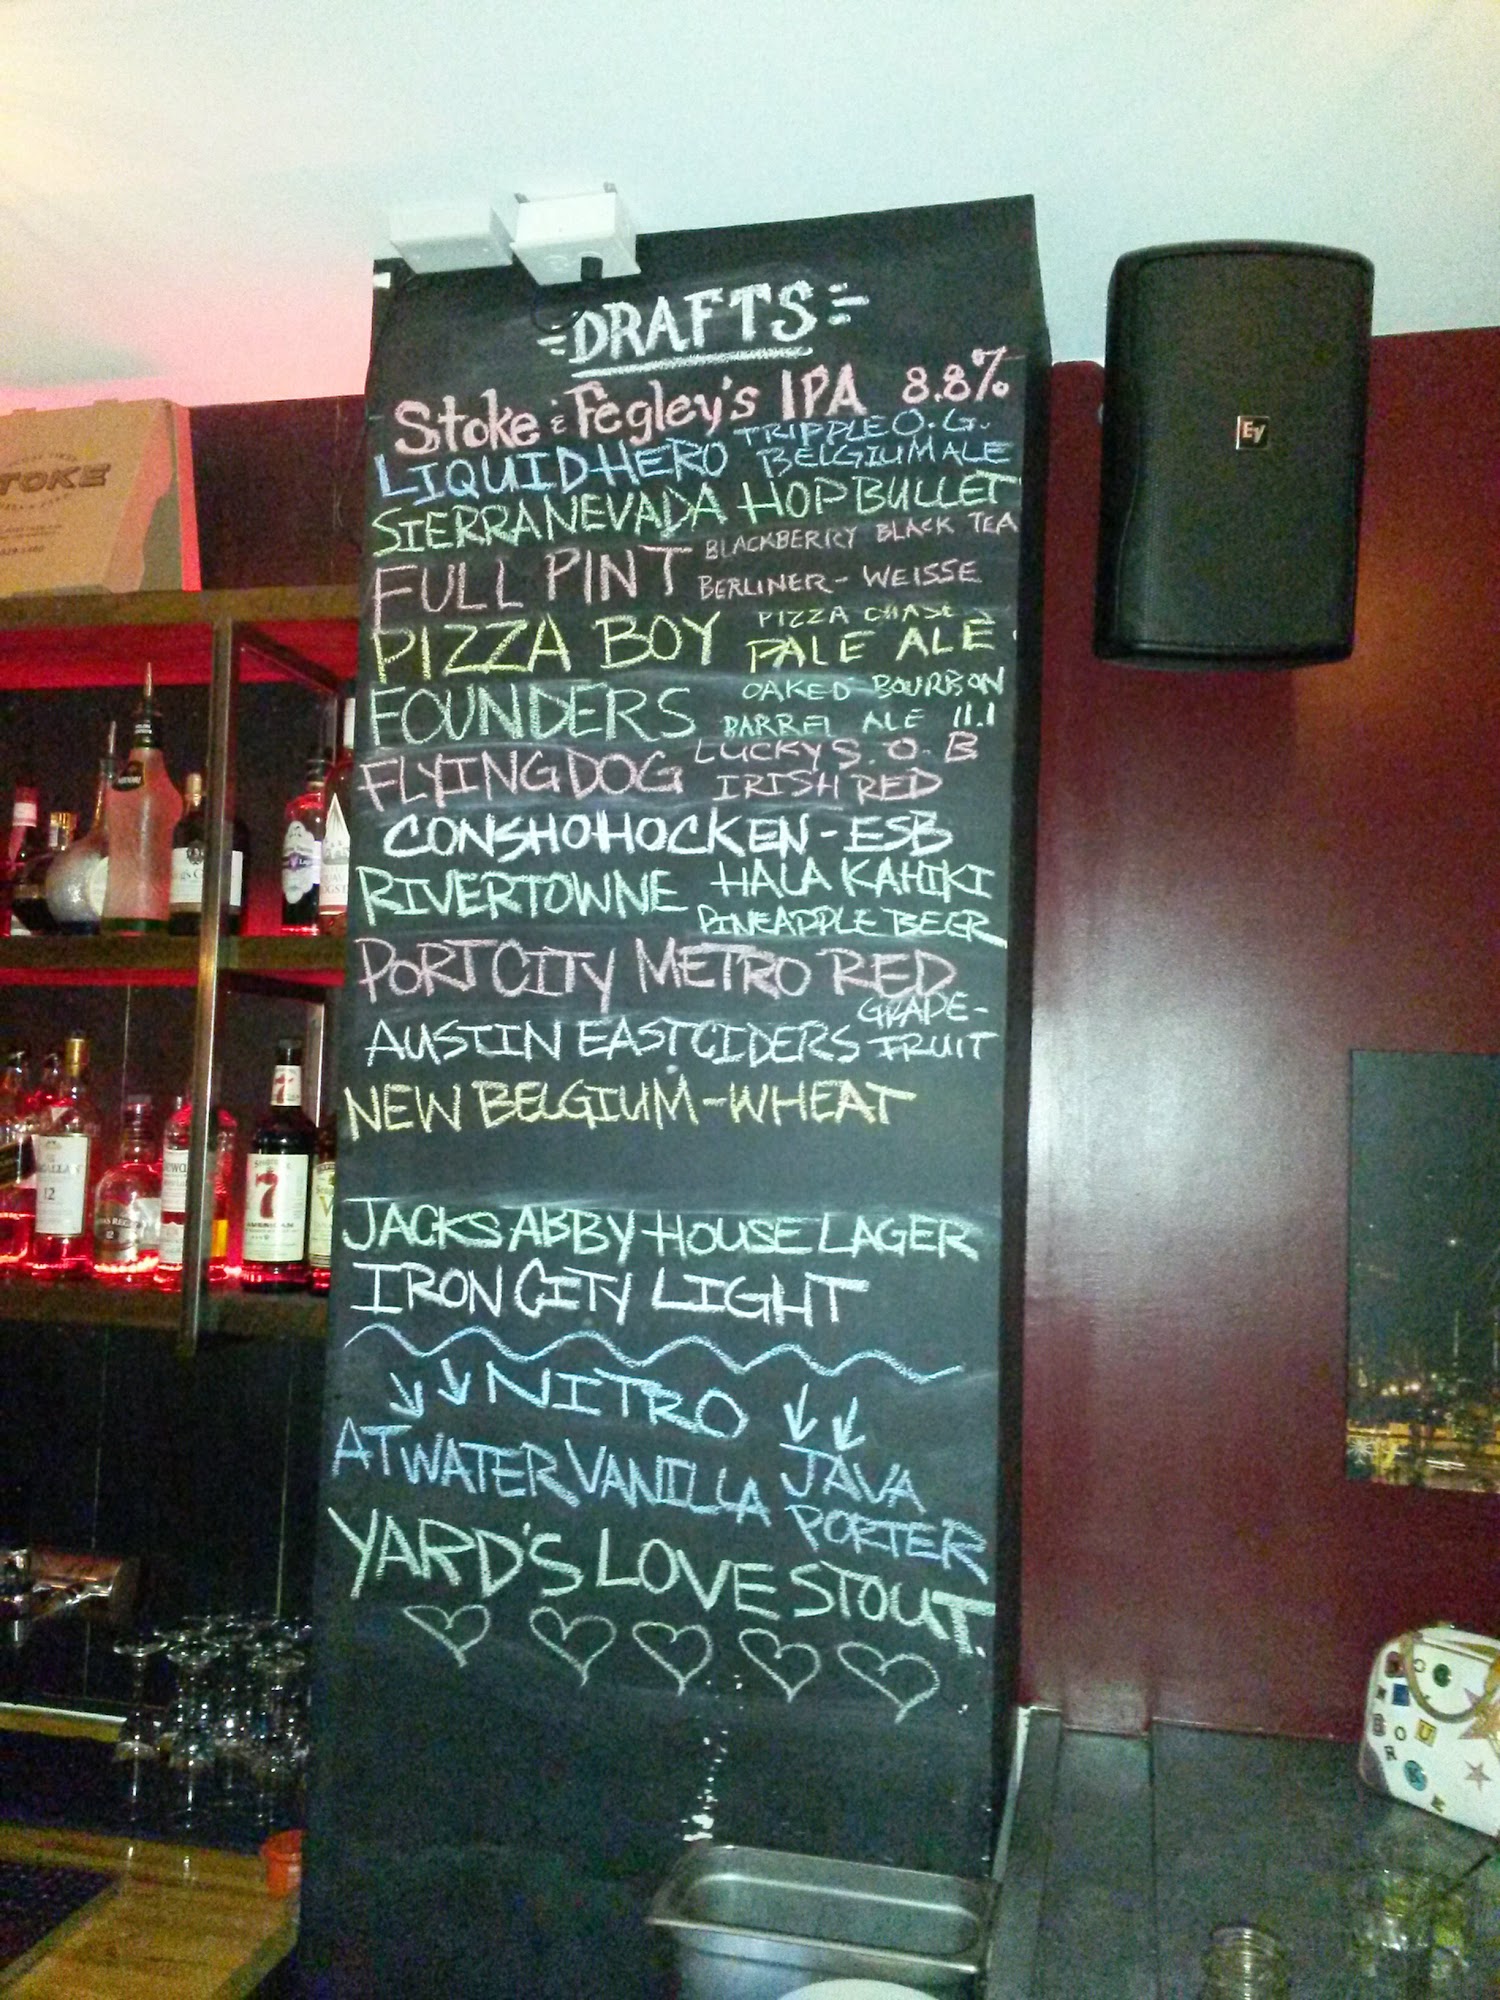 =DRAFTS=
Stoke & Fegley's IPA 8.8%
LIQUID HERO TRIPPLE O.G.
BELGIUM ALE
SIERRA NEVADA HOP BULLET
FULL PINT BLACKBERRY BLACK TEA
BERLINER-WEISSE
PIZZA BOY PIZZA CHASE
PALE ALE
FOUNDERS OAKED BOURBON
BARREL ALE 11.1
FLYING DOG LUCKY S.O.B
IRISH RED
CONSHOHOCKEN-ESB
RIVERTOWNE HALA KAHIKI
PINEAPPLE BEER
PORT CITY METRO RED
AUSTIN EASTCIDERS GRADE-
FRUIT
NEW BELGIUM-WHEAT
JACKS ABBY HOUSE LAGER
IRON CITY LIGHT
NITRO
ATWATER VANILLA JAVA
PORTER
YARD'S LOVE STOUT.
TOKE
EV
7
AMERICAN
12